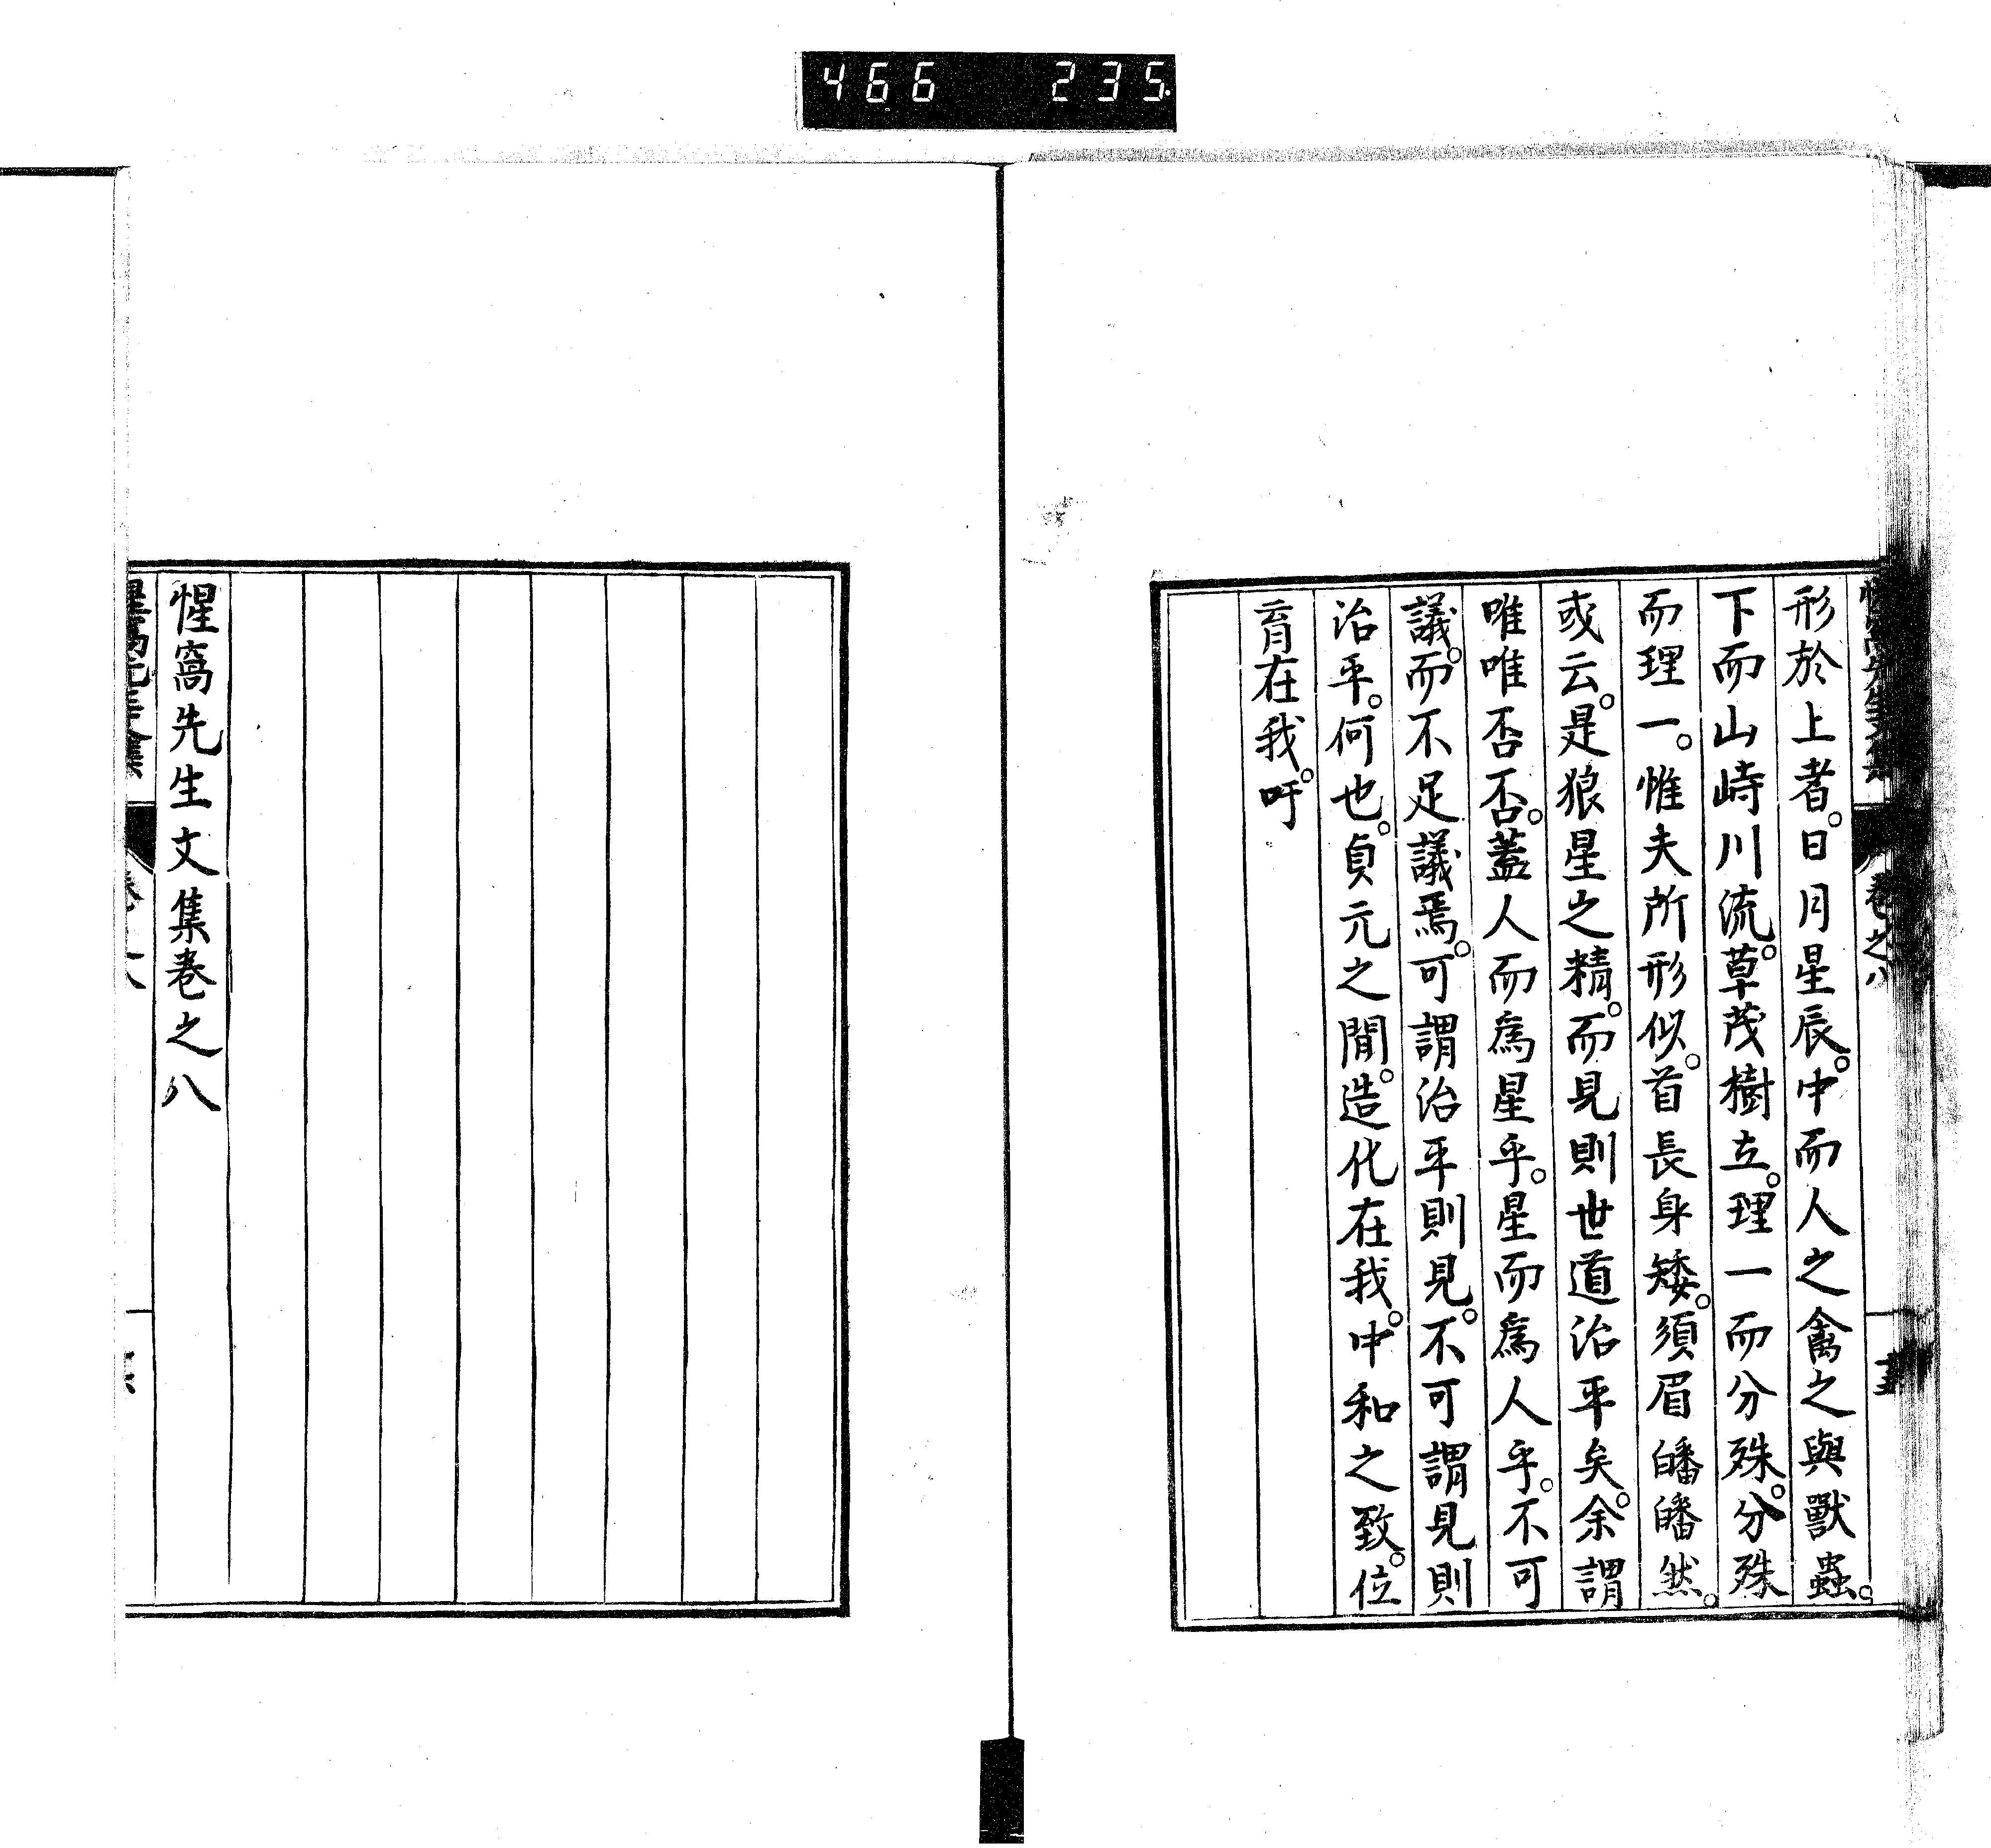 466 235.
形於上者。日月星辰。中而人之禽之與獸蟲。
下而山峙川流。草茂樹立。理一而分殊。分殊
而理一。惟夫所形似。首長身矮。須眉皤皤然。
或云。是狼星之精。而見則世道治平矣。余謂
唯唯否否。蓋人而爲星乎。星而爲人乎。不可
議。而不足議焉。可謂治平則見。不可謂見則
治平。何也。貞元之間。造化在我。中和之致。位
育在我。吁
惺窩先生文集卷之八